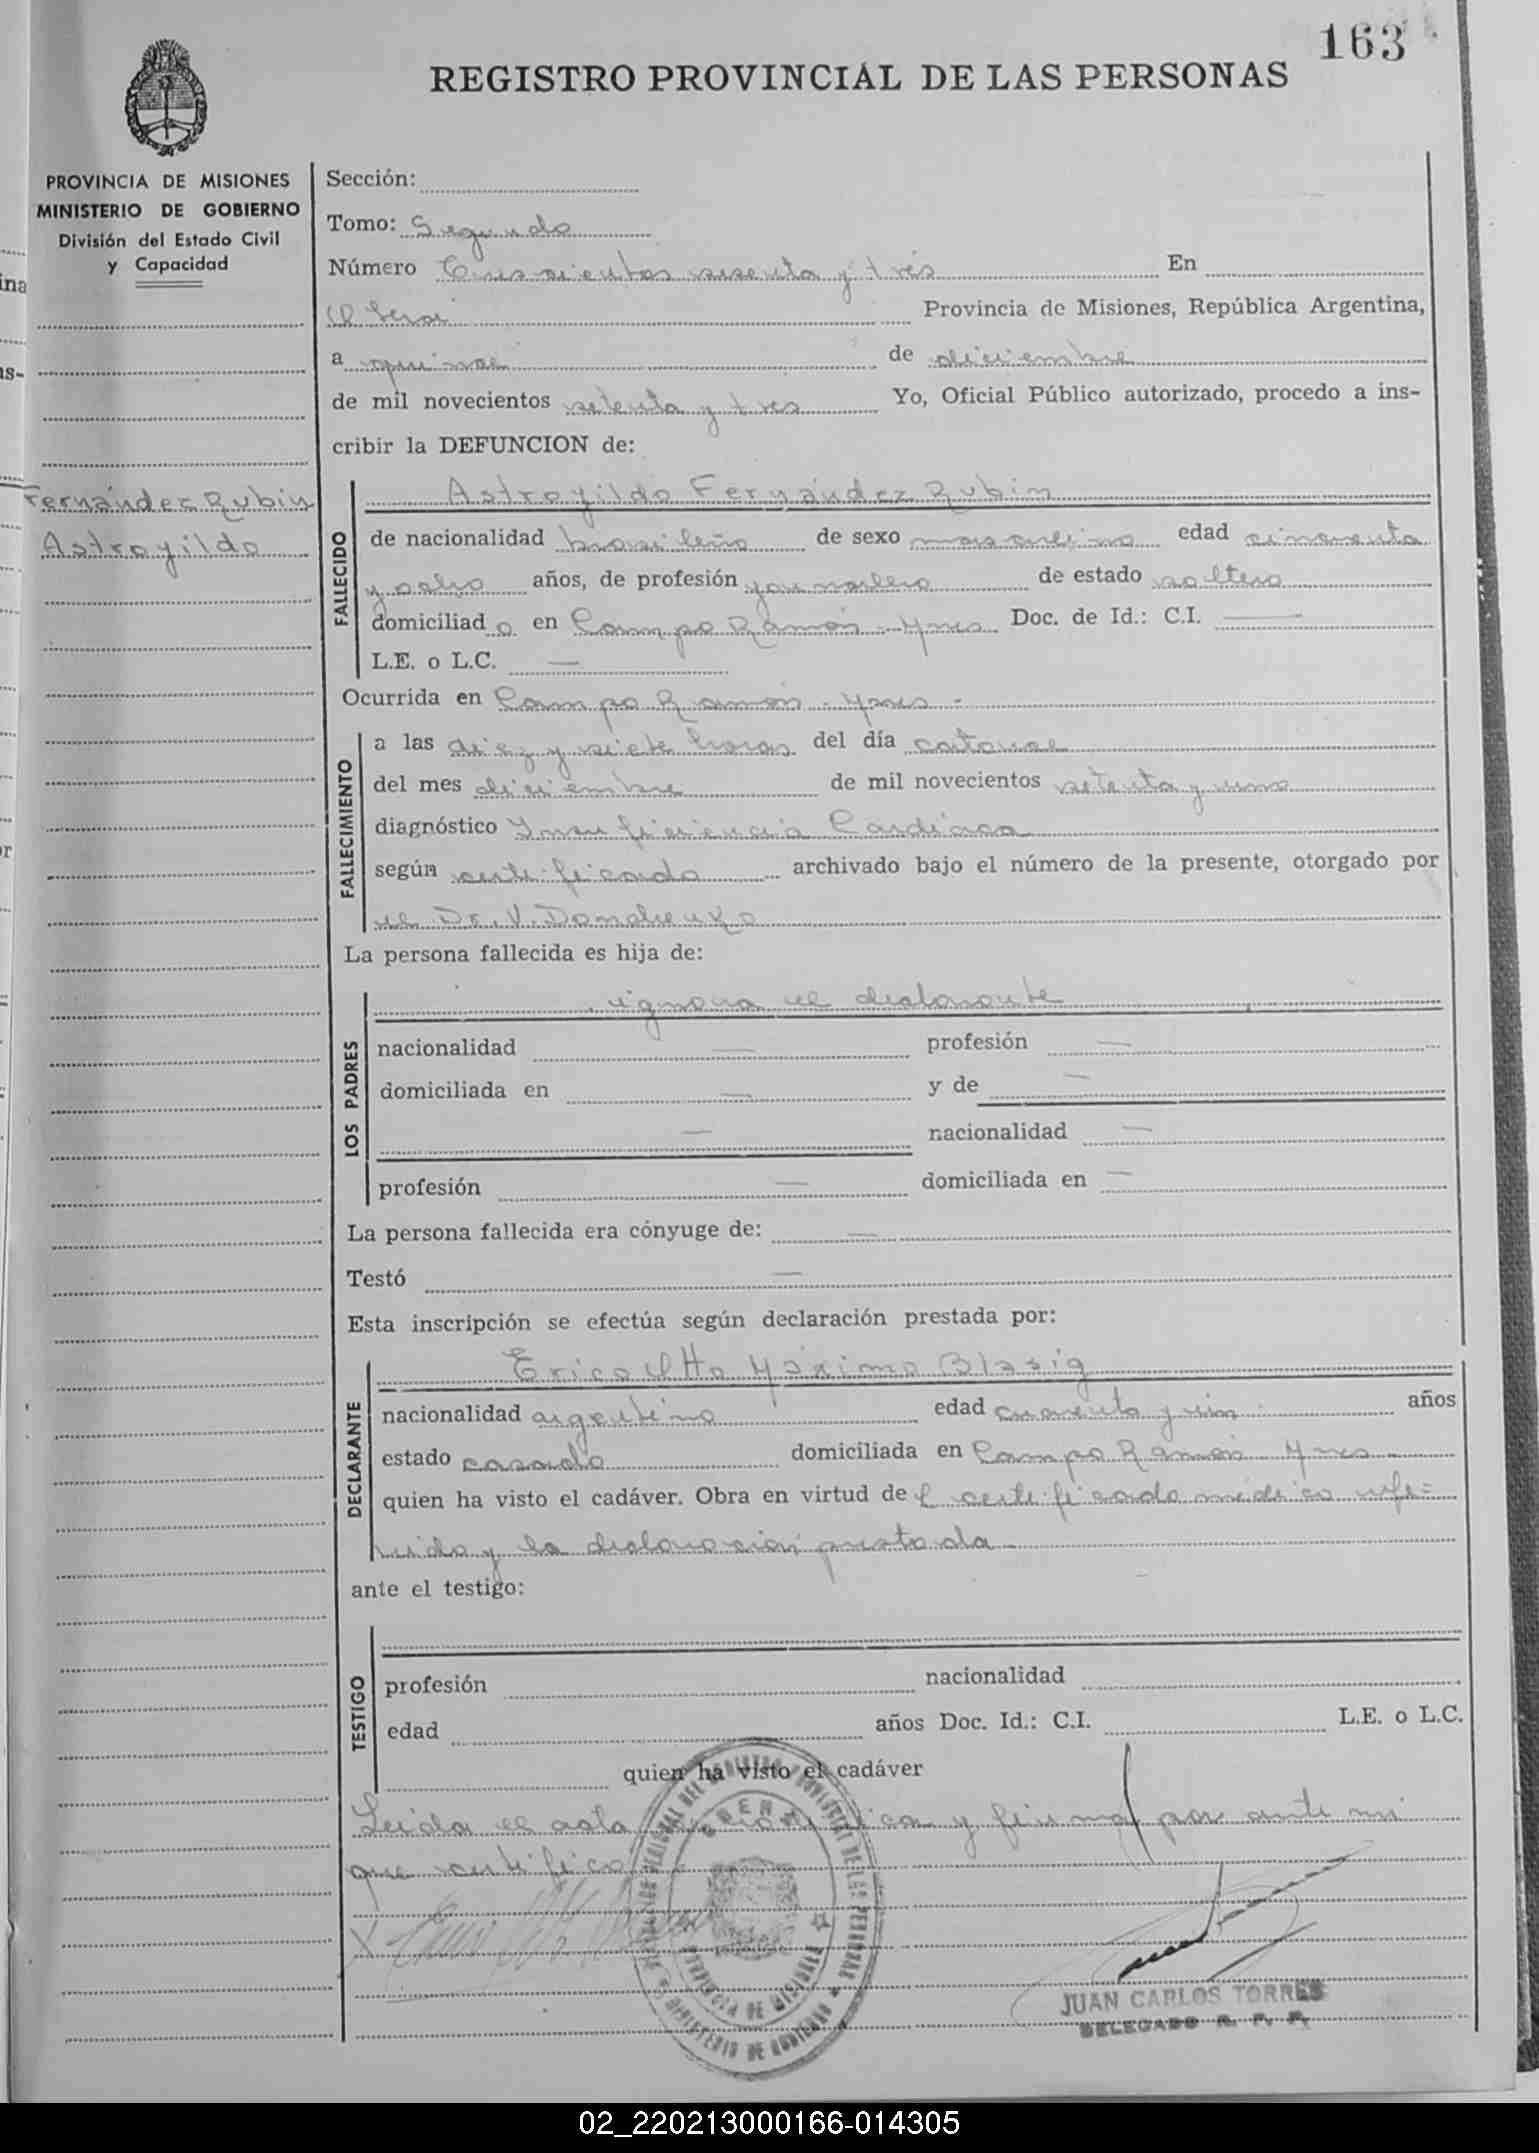 163
REGISTRO PROVINCIAL DE LAS PERSONAS
PROVINCIA DE MISIONES
MINISTERIO DE GOBIERNO
División del Estado Civil
y Capacidad
Fernández Rubin
Astroyildo
Sección:
Tomo: Segundo
Número Trescientos sesenta y trés En
Oberá Provincia de Misiones, República Argentina,
a quince de diciembre
de mil novecientos setenta y tres Yo, Oficial Público autorizado, procedo a ins-
cribir la DEFUNCION de:
FALLECIDO
Astroyildo Fernández Rubin
de nacionalidad brasileño de sexo masculino edad cincuenta
y ocho años, de profesión jornalero de estado soltero
domiciliado en Campo Ramón - Mnes Doc. de Id.: C.I. —
L.E. o L.C. —
Ocurrida en Campo Ramón - Mnes -
FALLECIMIENTO
a las diez y siete horas del día catorce
del mes diciembre de mil novecientos setenta y uno
diagnóstico Insuficiencia Cardíaca
según certificado archivado bajo el número de la presente, otorgado por
el Dr. V.
La persona fallecida es hija de:
LOS PADRES
ignora el declarante
nacionalidad — profesión —
domiciliada en — y de —
— nacionalidad —
profesión — domiciliada en —
La persona fallecida era cónyuge de: —
Testó —
Esta inscripción se efectúa según declaración prestada por:
DECLARANTE
Erico Otto Máximo Blasig
nacionalidad argentino edad cuarenta y un años
estado casado domiciliada en Campo Ramón Mnes
quien ha visto el cadáver. Obra en virtud del certificado médico refe-
rido y la declaración prestada
ante el testigo:
TESTIGO
profesión nacionalidad
edad años Doc. Id.: C.I. L.E. o L.C.
quien ha visto el cadáver
Leida el acta y firma por ante mi
que certifico
OBERA
PROVINCIA DE MISIONES
MINISTERIO DE GOBIERNO
JUAN CARLOS TORRES
DELEGADO R. P. P.
02_220213000166-014305